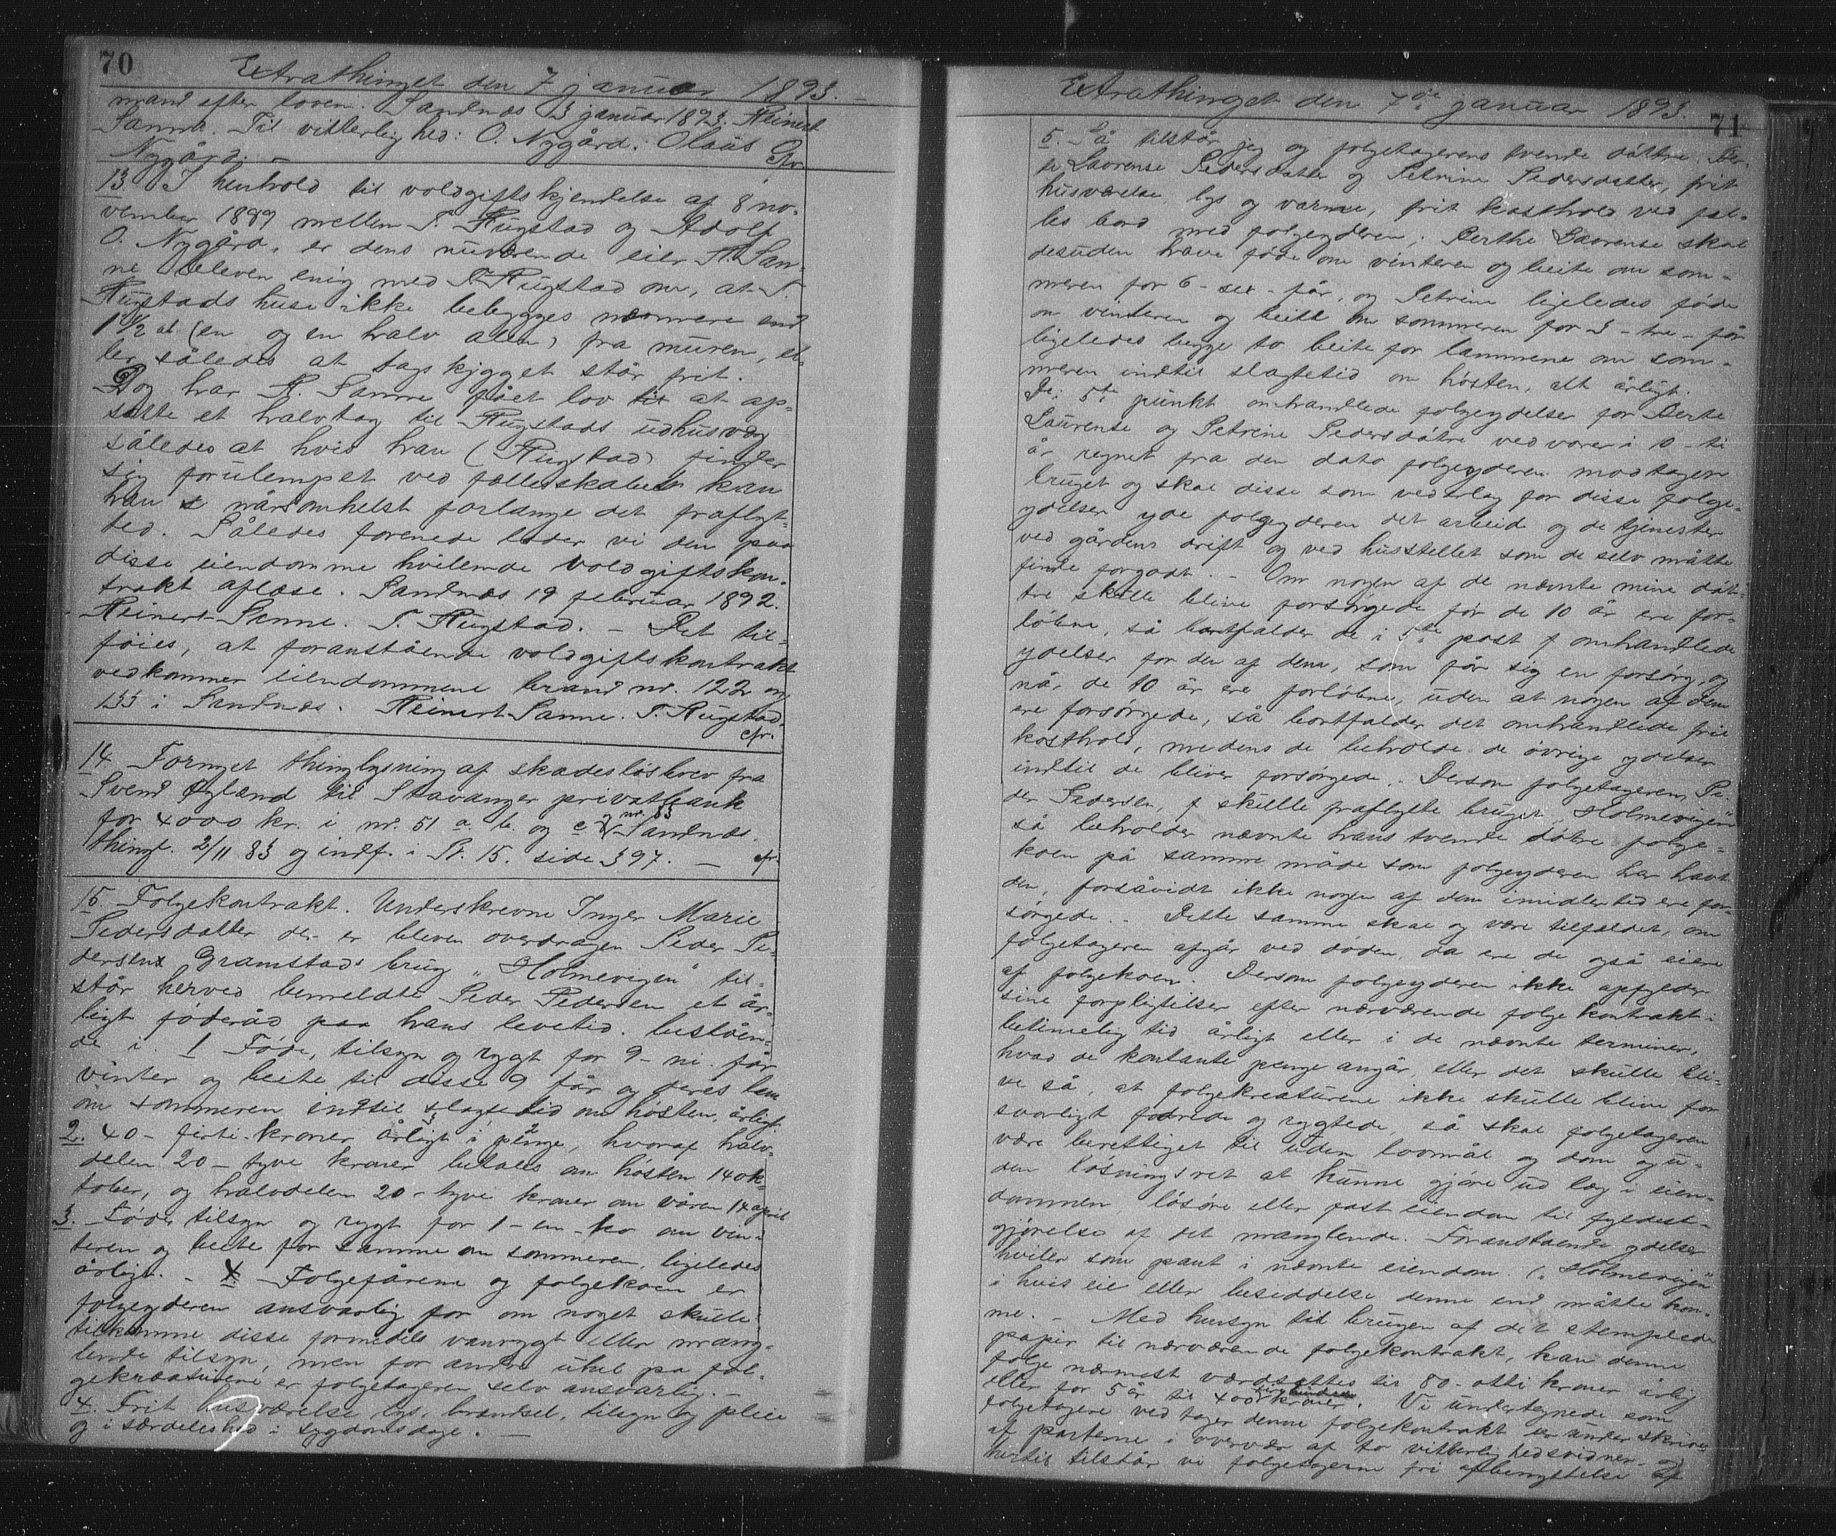 70
Extrathinget den 7 januar 1893.
mand efter loven. Sandnæs 3 januar 1893. Reinert
Sanne. Til vitterlighed: O. Nygård. Olaus
Nygård. — cfr.
13. I henhold til voldgiftskjendelse af 8 no-
vember 1889 mellem T. Rugstad og Adolf
O. Nygård, er dens nuværende eier R. San-
ne bleven enig med T. Rugstad om, at T.
Rugstads huse ikke bebygges nærmere end
1 1/2 al. (en og en halv alen) fra muren, el-
ler således at tagskjægget står frit.
Dog har R. Sanne fået lov til at op-
sætte et halvtag til Rugstads udhusvæg
således at hvis han (Rugstad) finder
sig forulempet ved fælleskabet kan
han når somhelst forlange det fraflyt-
ted. Således forenede lader vi den paa
disse eiendomme hvilende voldgiftskon-
trakt aflæse. Sandnæs 19 februar 1892.
Reinert Sanne. T. Rugstad. — Det til-
føies, at foranstående voldgiftskontrakt
vedkommer eiendommene brand nr. 122 og
133 i Sandnæs. Reinert Sanne. T. Rugstad.
cfr.
14. Fornyet thinglysning af skadesløsbrev fra
Svend Øgland til Stavanger privatbank
for 4000 kr. i nr. 51 a. b. og c. og nr. 53 Sandnæs.
thingl. 2/11 83 og indf. i Pr. 15. side 397. — cfr.
15. Følgekontrakt. Underskrevne Inger Marie
Pedersdatter der er bleven overdragen Peder Pe-
dersens Gramstads brug "Holmevigen" til-
står herved bemeldte Peder Pedersen et år-
ligt føderåd paa hans levetid. beståen-
de i. 1 Føde, tilsyn og rygt for 9 - ni - får
vinter og beite til disse 9 får og deres lam
om sommeren indtil slagtetid om høsten, årligt.
2. 40 - firti - kroner årligt i penge, hvoraf halv-
delen 20 - tyve kroner betales om høsten 14 ok-
tober, og halvdelen 20 - tyve kroner om våren 14 april
3. Føde, tilsyn og rygt for 1 - en - ko om vin-
teren og beite for samme om sommeren, ligeledes
årligt. — Følgefårene og følgekoen er
følgeyderen ansvarlig for om noget skulle
tilkomme disse formedels vanrygt eller mang-
lende tilsyn, men for andre uhel på føl-
gekreaturene er følgetageren selv ansvarlig. —
4. Frit husværelse, lys, brændsel, tilsyn og pleie
og i særdeleshed i sygdomsdage. —
Extrathinget den 7de januar 1893.
71
5. Så tilstår jeg og følgetagerens tvende døttre Ber-
te Laurense Pedersdatter og Petrine Pedersdatter, frit
husværelse, lys og varme, frit kosthold ved fæl-
les bord med følgeyderen; Berthe Laurense skal
desuden have føde om vinteren og beite om som-
meren for 6 - sex - får, og Petrine ligeledes føde
om vinteren og beite om sommeren for 3 - tre - får
ligeledes begge to beite for lammene om som-
meren indtil slagtetid om høsten, alt årligt.
De i 5te punkt omhandlede følgeydelser for Berte
Laurense og Petrine Pedersdøtre vedvarer i 10 - ti
år regnet fra den dato følgeyderen modtager
bruget og skal disse som vederlag for disse følge-
ydelser yde følgeyderen det arbeide og de tjenester
ved gårdens drift og ved husstellet som de selv måtte
finde forgodt. — Om nogen af de nævnte mine døt-
tre skulle blive forsørgede før de 10 år ere for-
løbne, så bortfalder de i 5te post omhandlede
ydelser for den af dem, som får sig en forsørg, og
når de 10 år ere forløbne, uden at nogen af dem
ere forsørgede, så bortfalder det omhandlede frie
kosthold, medens de beholde de øvrige ydelser
indtil de bliver forsørgede. Dersom følgetageren, Pe-
der Pedersen, skulle fraflytte bruget "Holmevigen"
så beholder nævnte hans tvende døtre følge-
koen på samme måde som følgeyderen har havt
den, forsåvidt ikke nogen af dem imidlertid ere for-
sørgede. Dette samme skal og være tilfældet, om
følgetageren afgår ved døden, da ere de også eiere
af følgekoen. Dersom følgeyderen ikke opfylder
sine forpligtelser efter nærværende følgekontrakt i
betimelig tid årligt eller i de nævnte terminer,
hvad de kontante penge angår, eller det skulle bli-
ve så, at følgekreaturene ikke skulle blive for
svarligt fodrede og rygtede, så skal følgetageren
være berettiget til uden lovmål og dom og u-
den løsningsret at kunne gjøre udlæg i eien-
dommen, løsøre eller fast eiendom til fyldest-
gjørelse af det manglende. Foranstaaende ydelser
hviler som pant i nævnte eiendom (: Holmevigen"
i hvis eie eller besiddelse denne end måtte kom-
me. — Med hensyn til brugen af det stemplede
papir til nærværende følgekontrakt, kan denne
følge nærmest værdsættes til 80 - otti kroner årlig
eller for 5 år til 400 fire hundrede kroner. Vi undertegnede som
følgetagere vedtager denne følgekontrakt der underskrives
af parterne i overvær af to vitterlighedsvidner - og
hertil tilstår vi følgetagerne fri afbenyttelse af